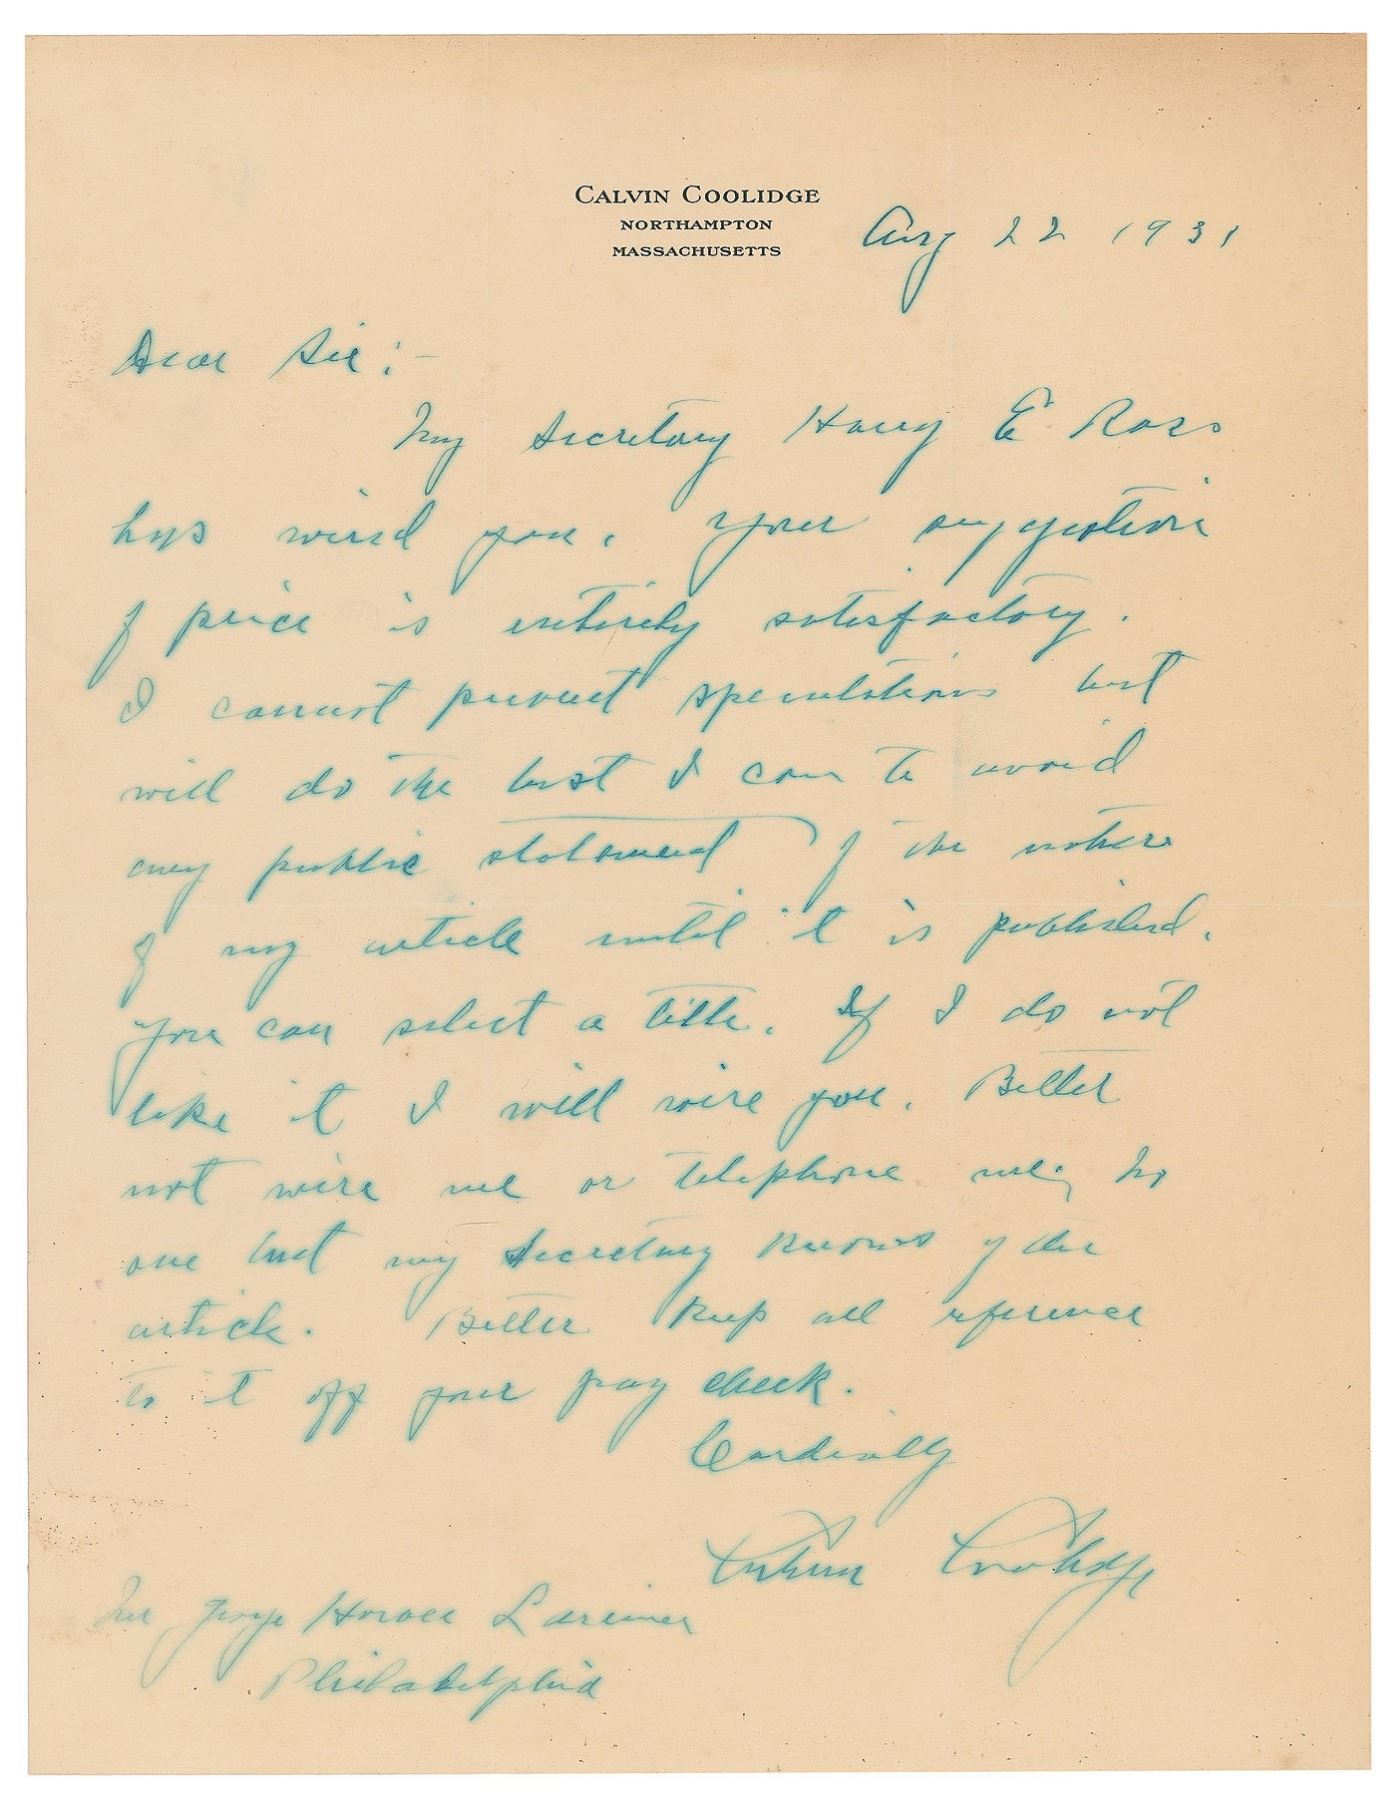 CALVIN COOLIDGE
NORTHAMPTON
MASSACHUSETTS
Aug 22 1931
Dear Sir:-
My Secretary Harry E Ross
has wired you. Your suggestion
of price is entirely satisfactory.
I cannot prevent speculation but
will do the best I can to avoid
any public statement of the nature
of my article until it is published.
You can select a title. If I do not
like it I will wire you. Better
not wire me or telephone me; no
one but my Secretary knows of the
article. Better keep all reference
to it off your pay check.
Cordially
Calvin Coolidge
Mr George Horace Lorimer
Philadelphia